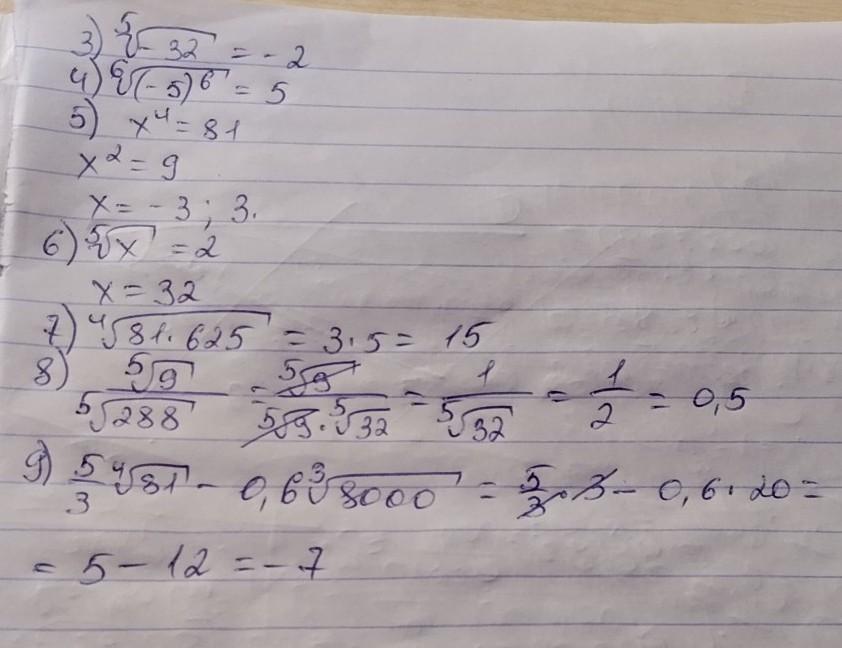 3) ⁵√-32 = -2
4) ⁶√(-5)⁶ = 5
5) x⁴ = 81
x² = 9
x = -3; 3.
6) ⁵√x = 2
x = 32
7) ⁴√81·625 = 3·5 = 15
8) ⁵√9 / ⁵√288 = ⁵√9 / ⁵√9·⁵√32 = 1 / ⁵√32 = 1/2 = 0,5
9) 5/3 ⁴√81 - 0,6 ³√8000 = 5/3·3 - 0,6·20 =
= 5 - 12 = -7